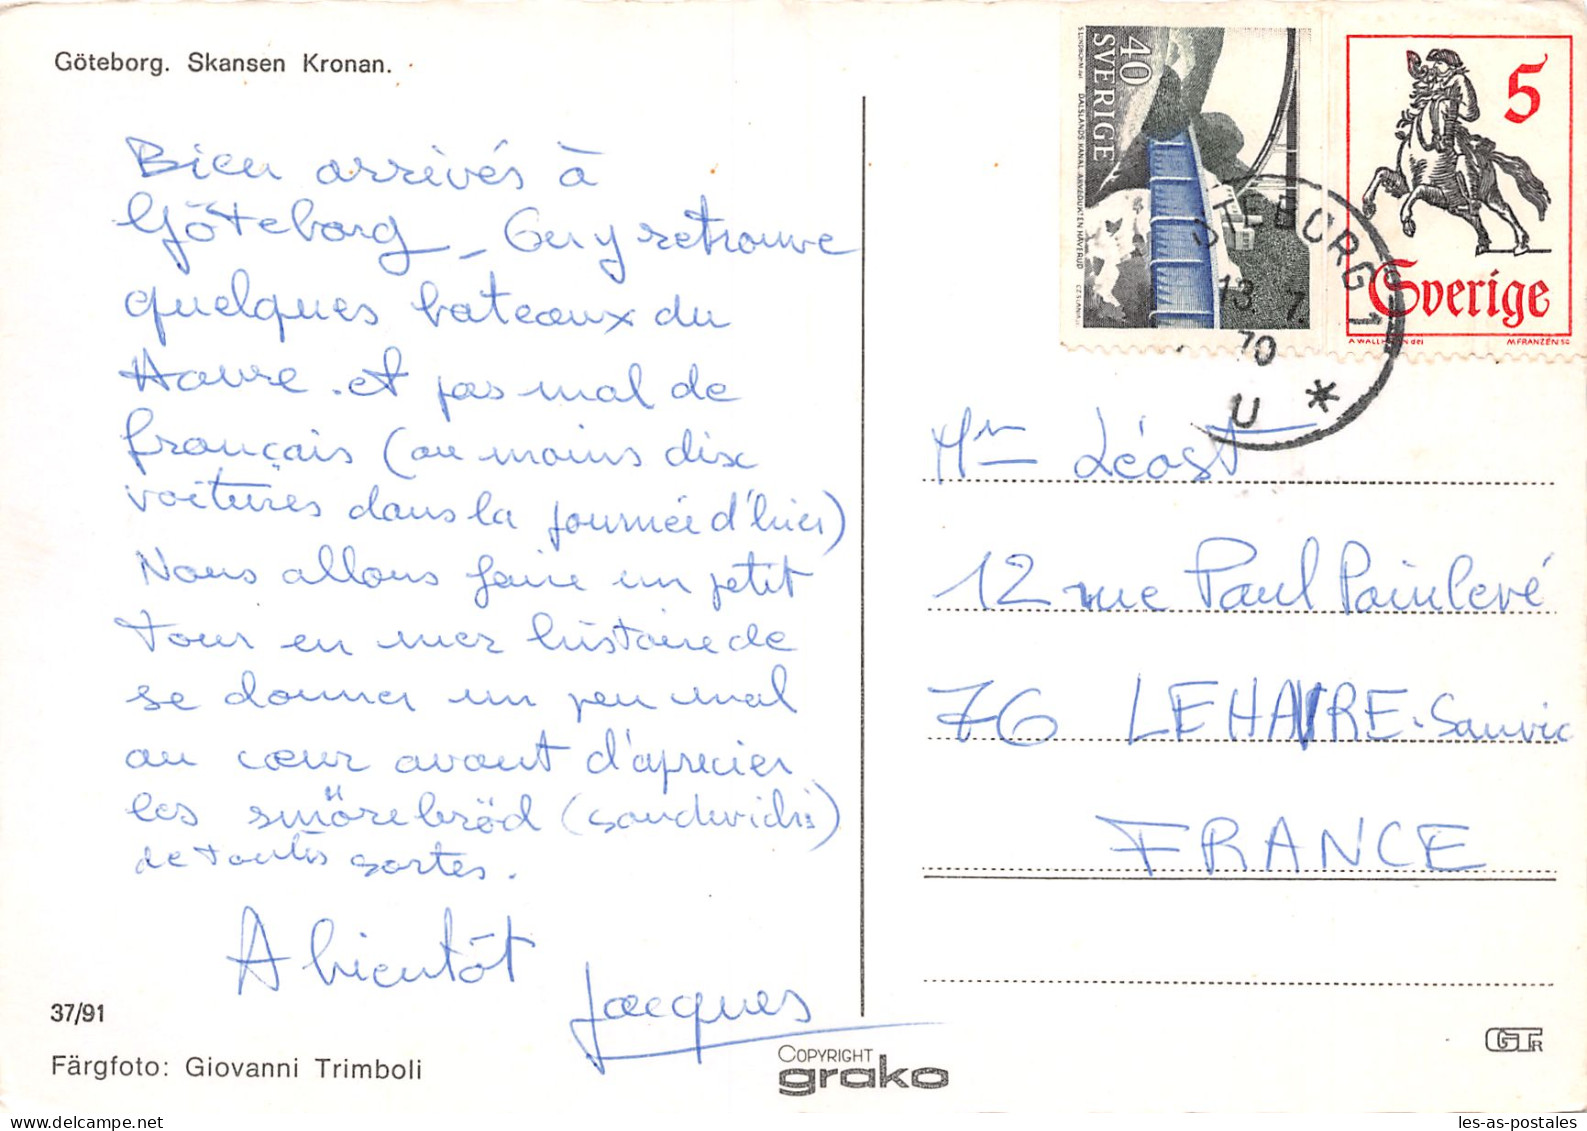 Göteborg. Skansen Kronan.
Bien arrivés à
Göteborg – On y retrouve
quelques bateaux du
Havre . et pas mal de
français (au moins dix
voitures dans la journée d'hier)
Nous allons faire un petit
tour en mer histoire de
se donner un peu mal
au cœur avant d'aprecier
les smörebröd (sandwichs)
de toutes sortes.
A bientôt
Jacques
37/91
Färgfoto: Giovanni Trimboli
COPYRIGHT
grako
40
SVERIGE
S LUNDBOHM
DALSLANDS KANAL. AKVEDUKTEN HÅVERUD
CZ SLANIA
5
Sverige
M FRANZÉN SC
GÖTEBORG 1
13. 7.
70
U *
Mr Léost
12 rue Paul Painlevé
76 LE HAVRE. Sanvic
FRANCE
GTR
les-as-postales